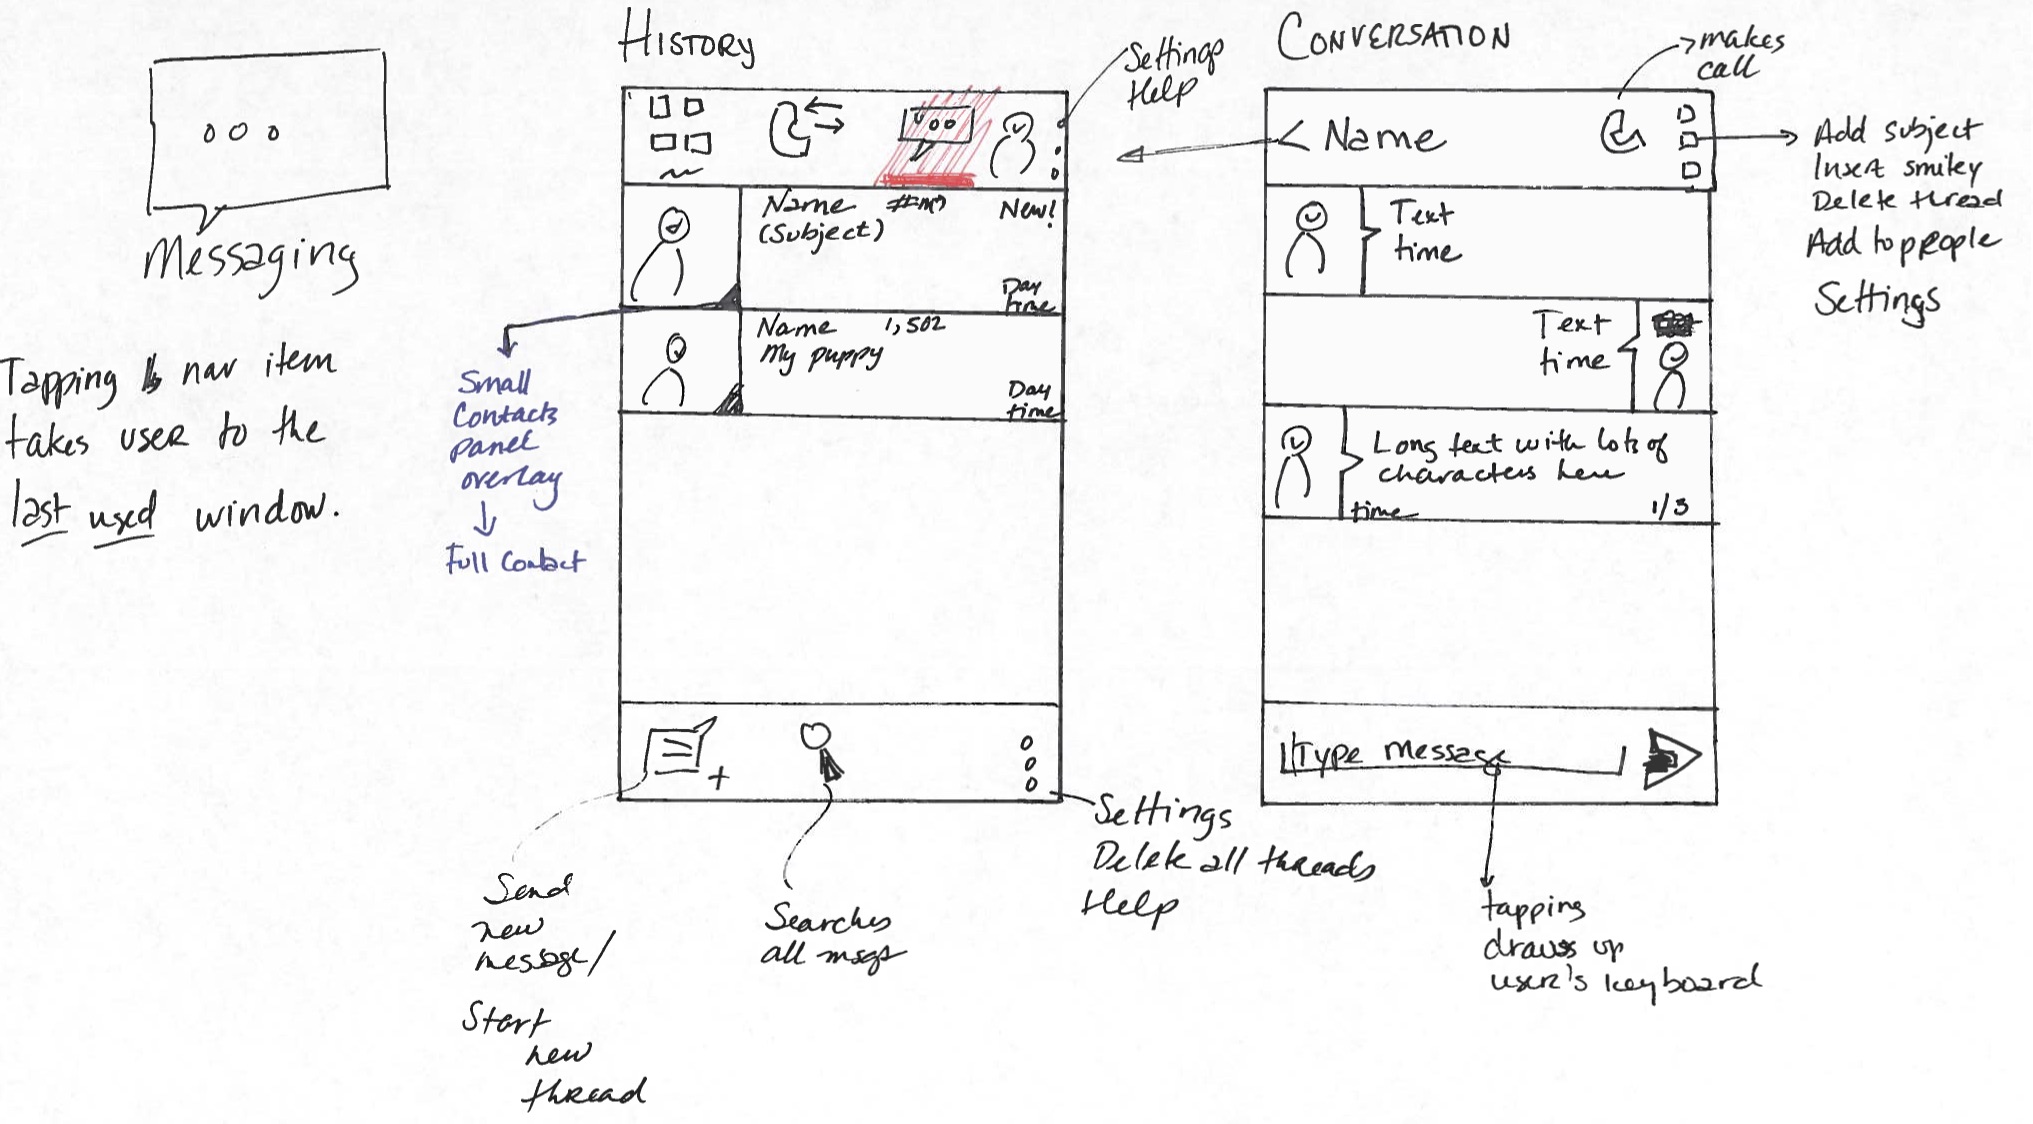 Messaging
Tapping nav item
takes user to the
last used window.
HISTORY
Settings
Help
Name
(Subject)
New!
Day
time
Name 1,502
My puppy
Day
time
Small
Contacts
panel
overlay
Full Contact
Send
new
message/
Start
new
thread
Searches
all msgs
Settings
Delete all threads
Help
CONVERSATION
makes
call
< Name
Add subject
Insert smiley
Delete thread
Add to people
Settings
Text
time
Text
time
Long text with lots of
characters here
time 1/3
Type Message
tapping
draws up
user's keyboard